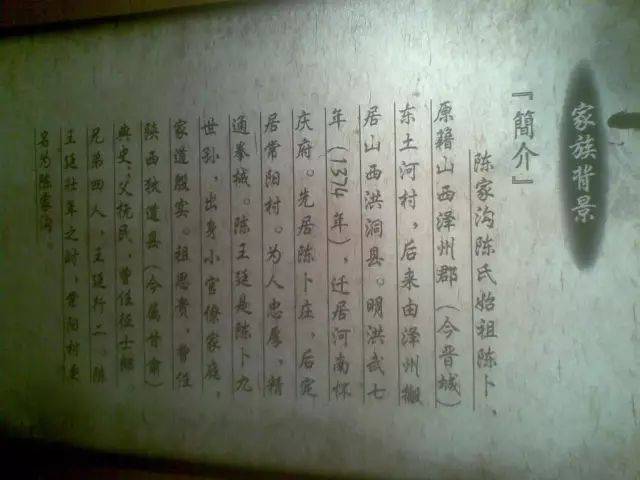 家族背景
『簡介』
陈家沟陈氏始祖陈卜，
原籍山西泽州郡（今晋城）
东土河村，后来由泽州搬
居山西洪洞县。明洪武七
年（1374年），迁居河南怀
庆府。先居陈卜庄，后定
居常阳村。为人忠厚，精
通拳械。陈王廷是陈卜九
世孙，出身小官僚家庭，
家道殷实。祖思贵，曾任
陕西狄道县（今属甘肃）
典史，父抚民，曾任征士郎
兄弟四人，王廷行二。陈
王廷壮年之时，常阳村更
名为陈家沟。